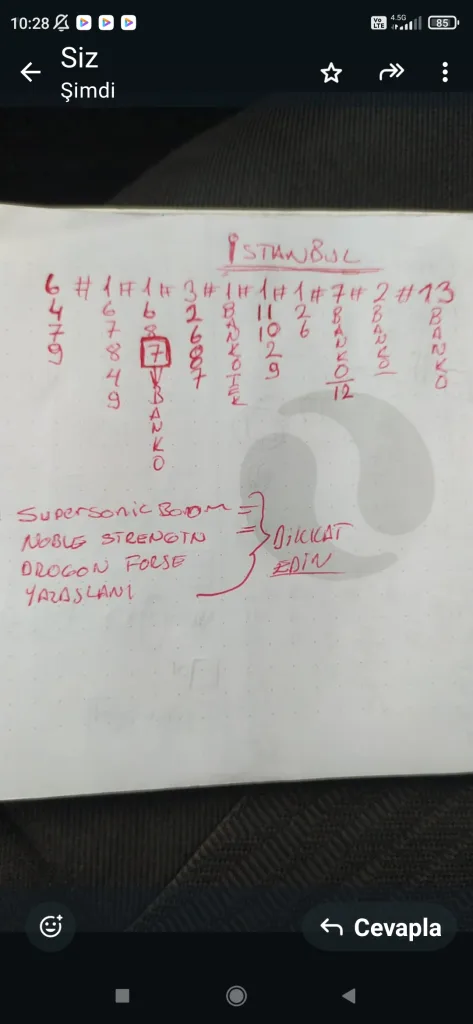 10:28
Vo LTE 4.5G 85
Siz
Şimdi
İSTANBUL
6 # 1 # 1 # 3 # 1 # 1 # 1 # 7 # 2 # 13
4 6 6 2 B 11 2 B B B
7 7 8 6 A 10 6 A A A
9 8 7 8 N 2 N N N
4 V 7 K 9 K K K
9 B O O O O
A TEK 12
N
K
O
SUPERSONIC BOOM =
NOBLE STRENGTH = DİKKAT
DROGON FORSE EDİN
YAZASLANI
Cevapla